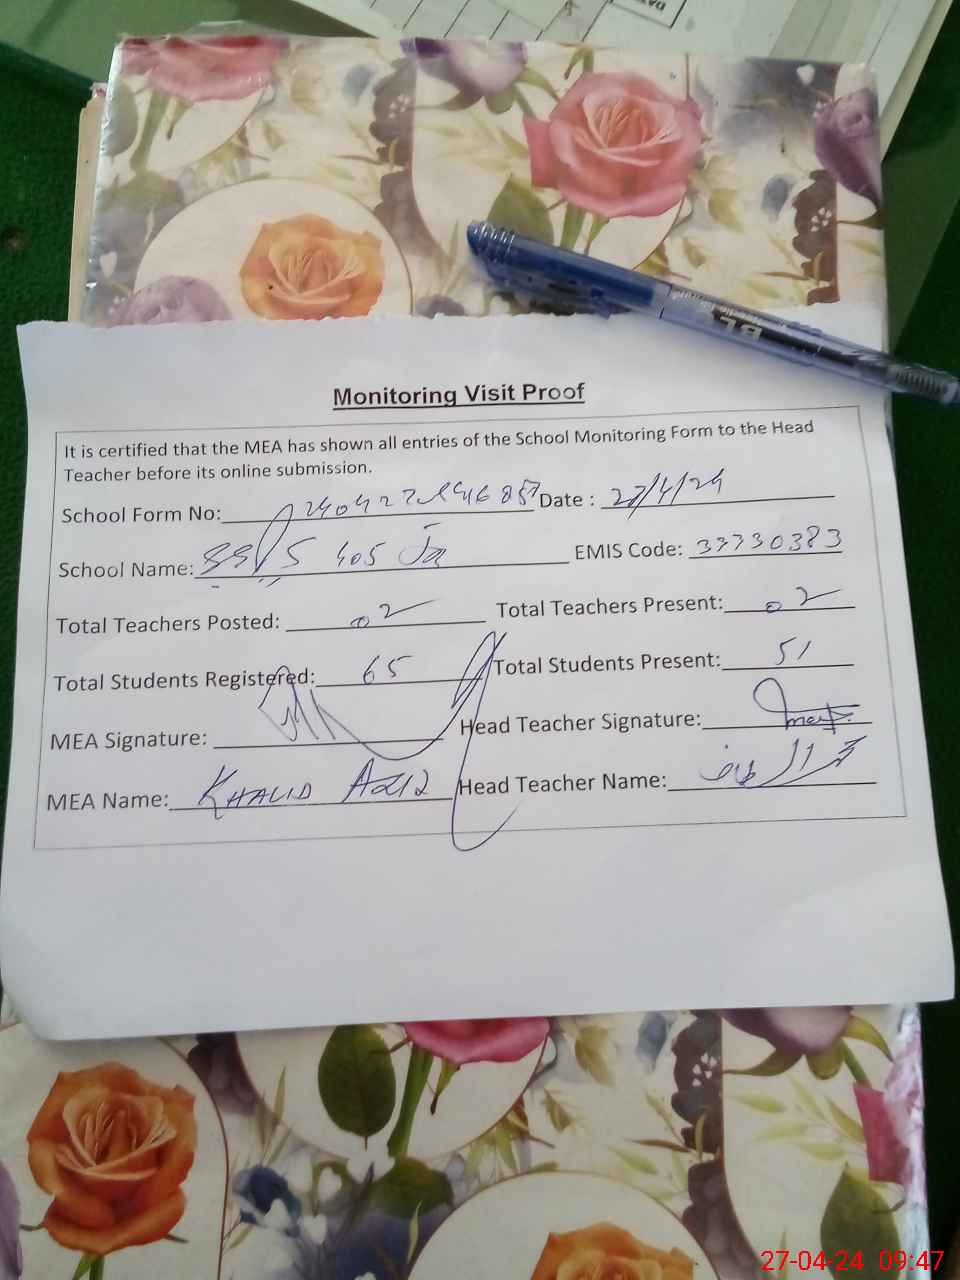 Monitoring Visit Proof
It is certified that the MEA has shown all entries of the School Monitoring Form to the Head
Teacher before its online submission.
School Form No: Date : 27/4/24
School Name: 405 EMIS Code: 33730383
Total Teachers Posted: 02 Total Teachers Present: 02
Total Students Registered: 65 Total Students Present: 51
MEA Signature: Head Teacher Signature:
MEA Name: KHALID AZIZ Head Teacher Name:
27-04-24 09:47